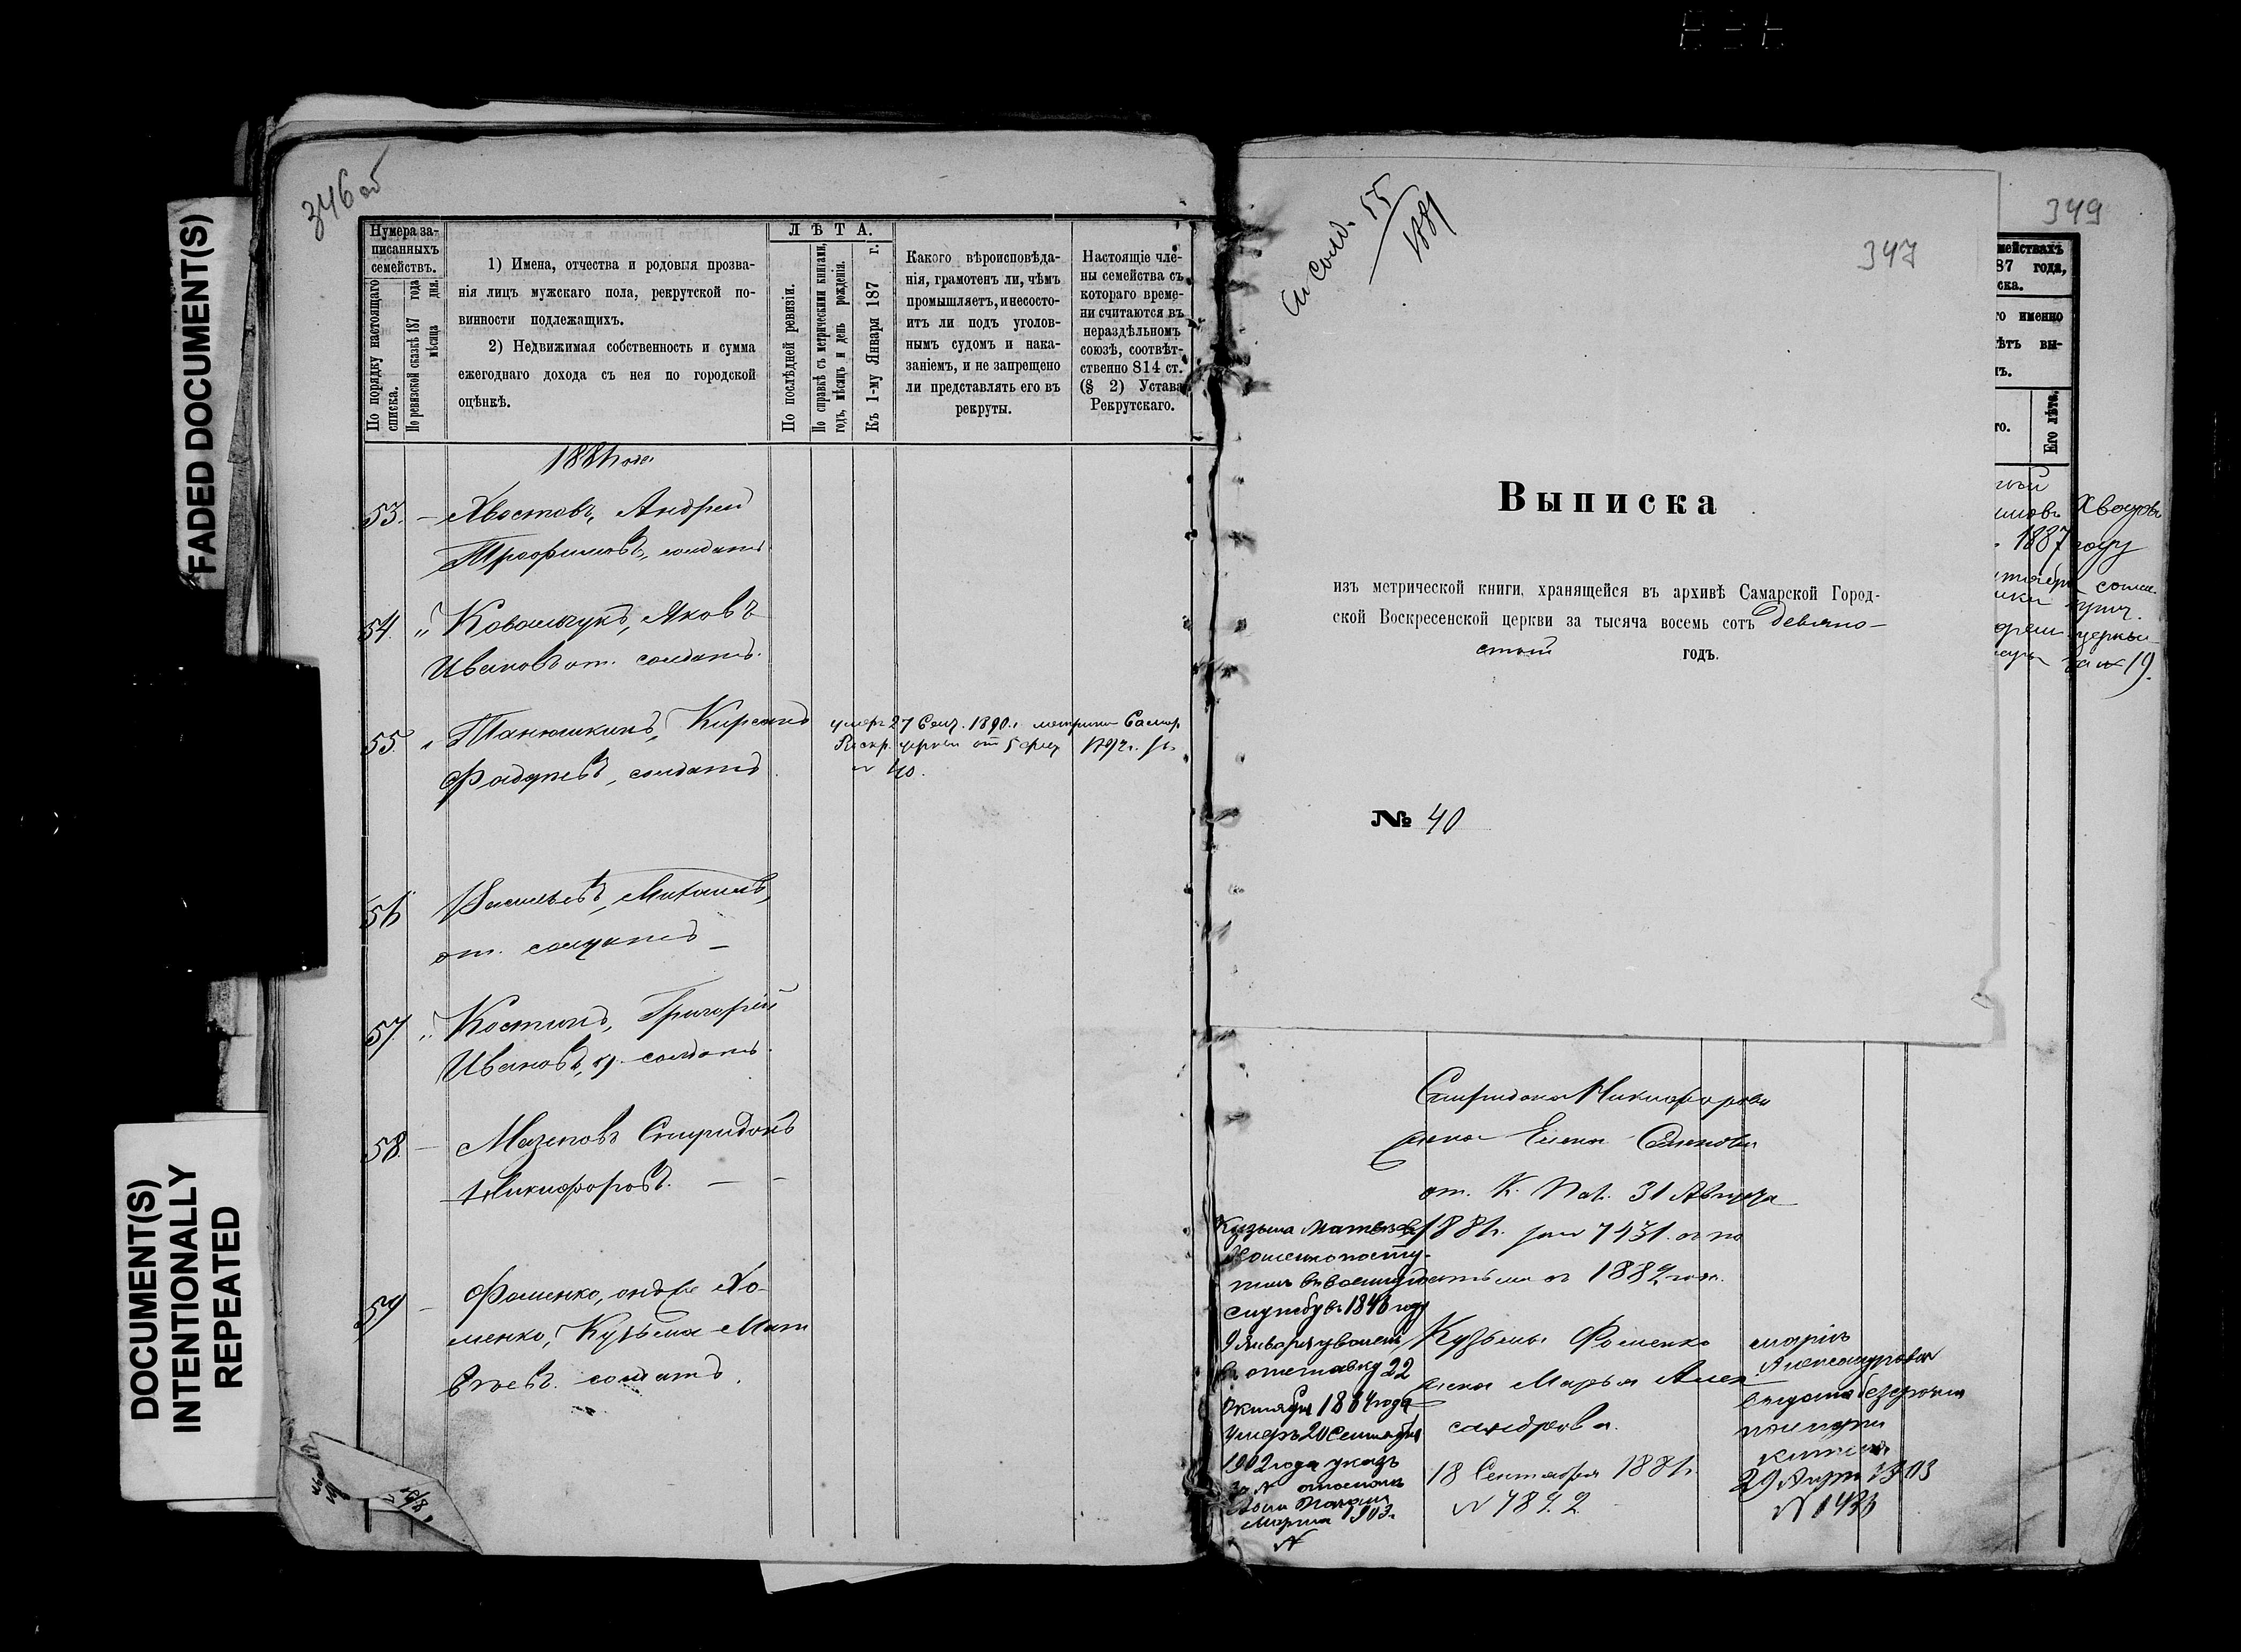 FADED DOCUMENT(S)
DOCUMENT(S)
INTENTIONALLY
REPEATED
346 об
Нумера за-
писанныхъ
семействъ.
По порядку настоящаго
списка.
По ревизской сказкѣ 187 года
мѣсяца дня.
1) Имена, отчества и родовыя прозва-
нія лицъ мужскаго пола, рекрутской по-
винности подлежащихъ.
2) Недвижимая собственность и сумма
ежегоднаго дохода съ нея по городской
оцѣнкѣ.
ЛѢТА.
По послѣдней ревизіи.
По справкѣ съ метрическими книгами,
годъ, мѣсяцъ и день рожденія.
Къ 1-му Января 187 г.
Какого вѣроисповѣда-
нія, грамотенъ ли, чѣмъ
промышляетъ, и несосто-
итъ ли подъ уголов-
нымъ судомъ и нака-
заніемъ, и не запрещено
ли представлять его въ
рекруты.
Настоящіе чле-
ны семейства съ
котораго време-
ни считаются въ
нераздѣльномъ
союзѣ, соотвѣт-
ственно 814 ст.
(§ 2) Устава
Рекрутскаго.
1881 года
53. – Хвостовъ, Андрей
Трофимовъ, солдатъ
54. " Ковальчукъ, Яковъ
Ивановъ от. солдатъ.
55. " Танюшкинъ, Кирсанъ
Фадѣевъ, солдатъ
умеръ 27 Сент. 1890 г. метрика Самар.
Воскр. церкви от 5 фев 1892 г. за
№ 40.
56 Васильевъ, Михаилъ,
от. солдатъ –
57. " Костинъ, Григорій
Ивановъ, солдатъ.
58. – Мазеповъ Спиридонъ
Никифоровъ. – –
59 – Фоменко, онъ же Хо-
менко, Кузьма Мат
вѣевъ. солдатъ.
55
1881
347
Выписка
изъ метрической книги, хранящейся въ архивѣ Самарской Город-
ской Воскресенской церкви за тысяча восемь сотъ девяно-
стый годъ.
№ 40
349
87 года,
го именно
Его лѣта.
Хвостовъ
1887 году
19.
Спиридона Никифорова
жена Елена
от. К. Пал. 31 Августа
1881 г. за № 7431.
съ 1882 года.
Кузьма Матвѣевъ
службу въ 1843 году
9 Января уволенъ
въ отставку 22
Октября 1864 года
Умеръ 20 Сентября
1902 года указъ
за №
Марта 1903 г.
№
Кузьмы Фоменко
жена Марья Алек
сандрова.
18 Сентября 1881 г.
№ 7892
Марія
Александрова
выдана безсрочная
29 Апр. 1903